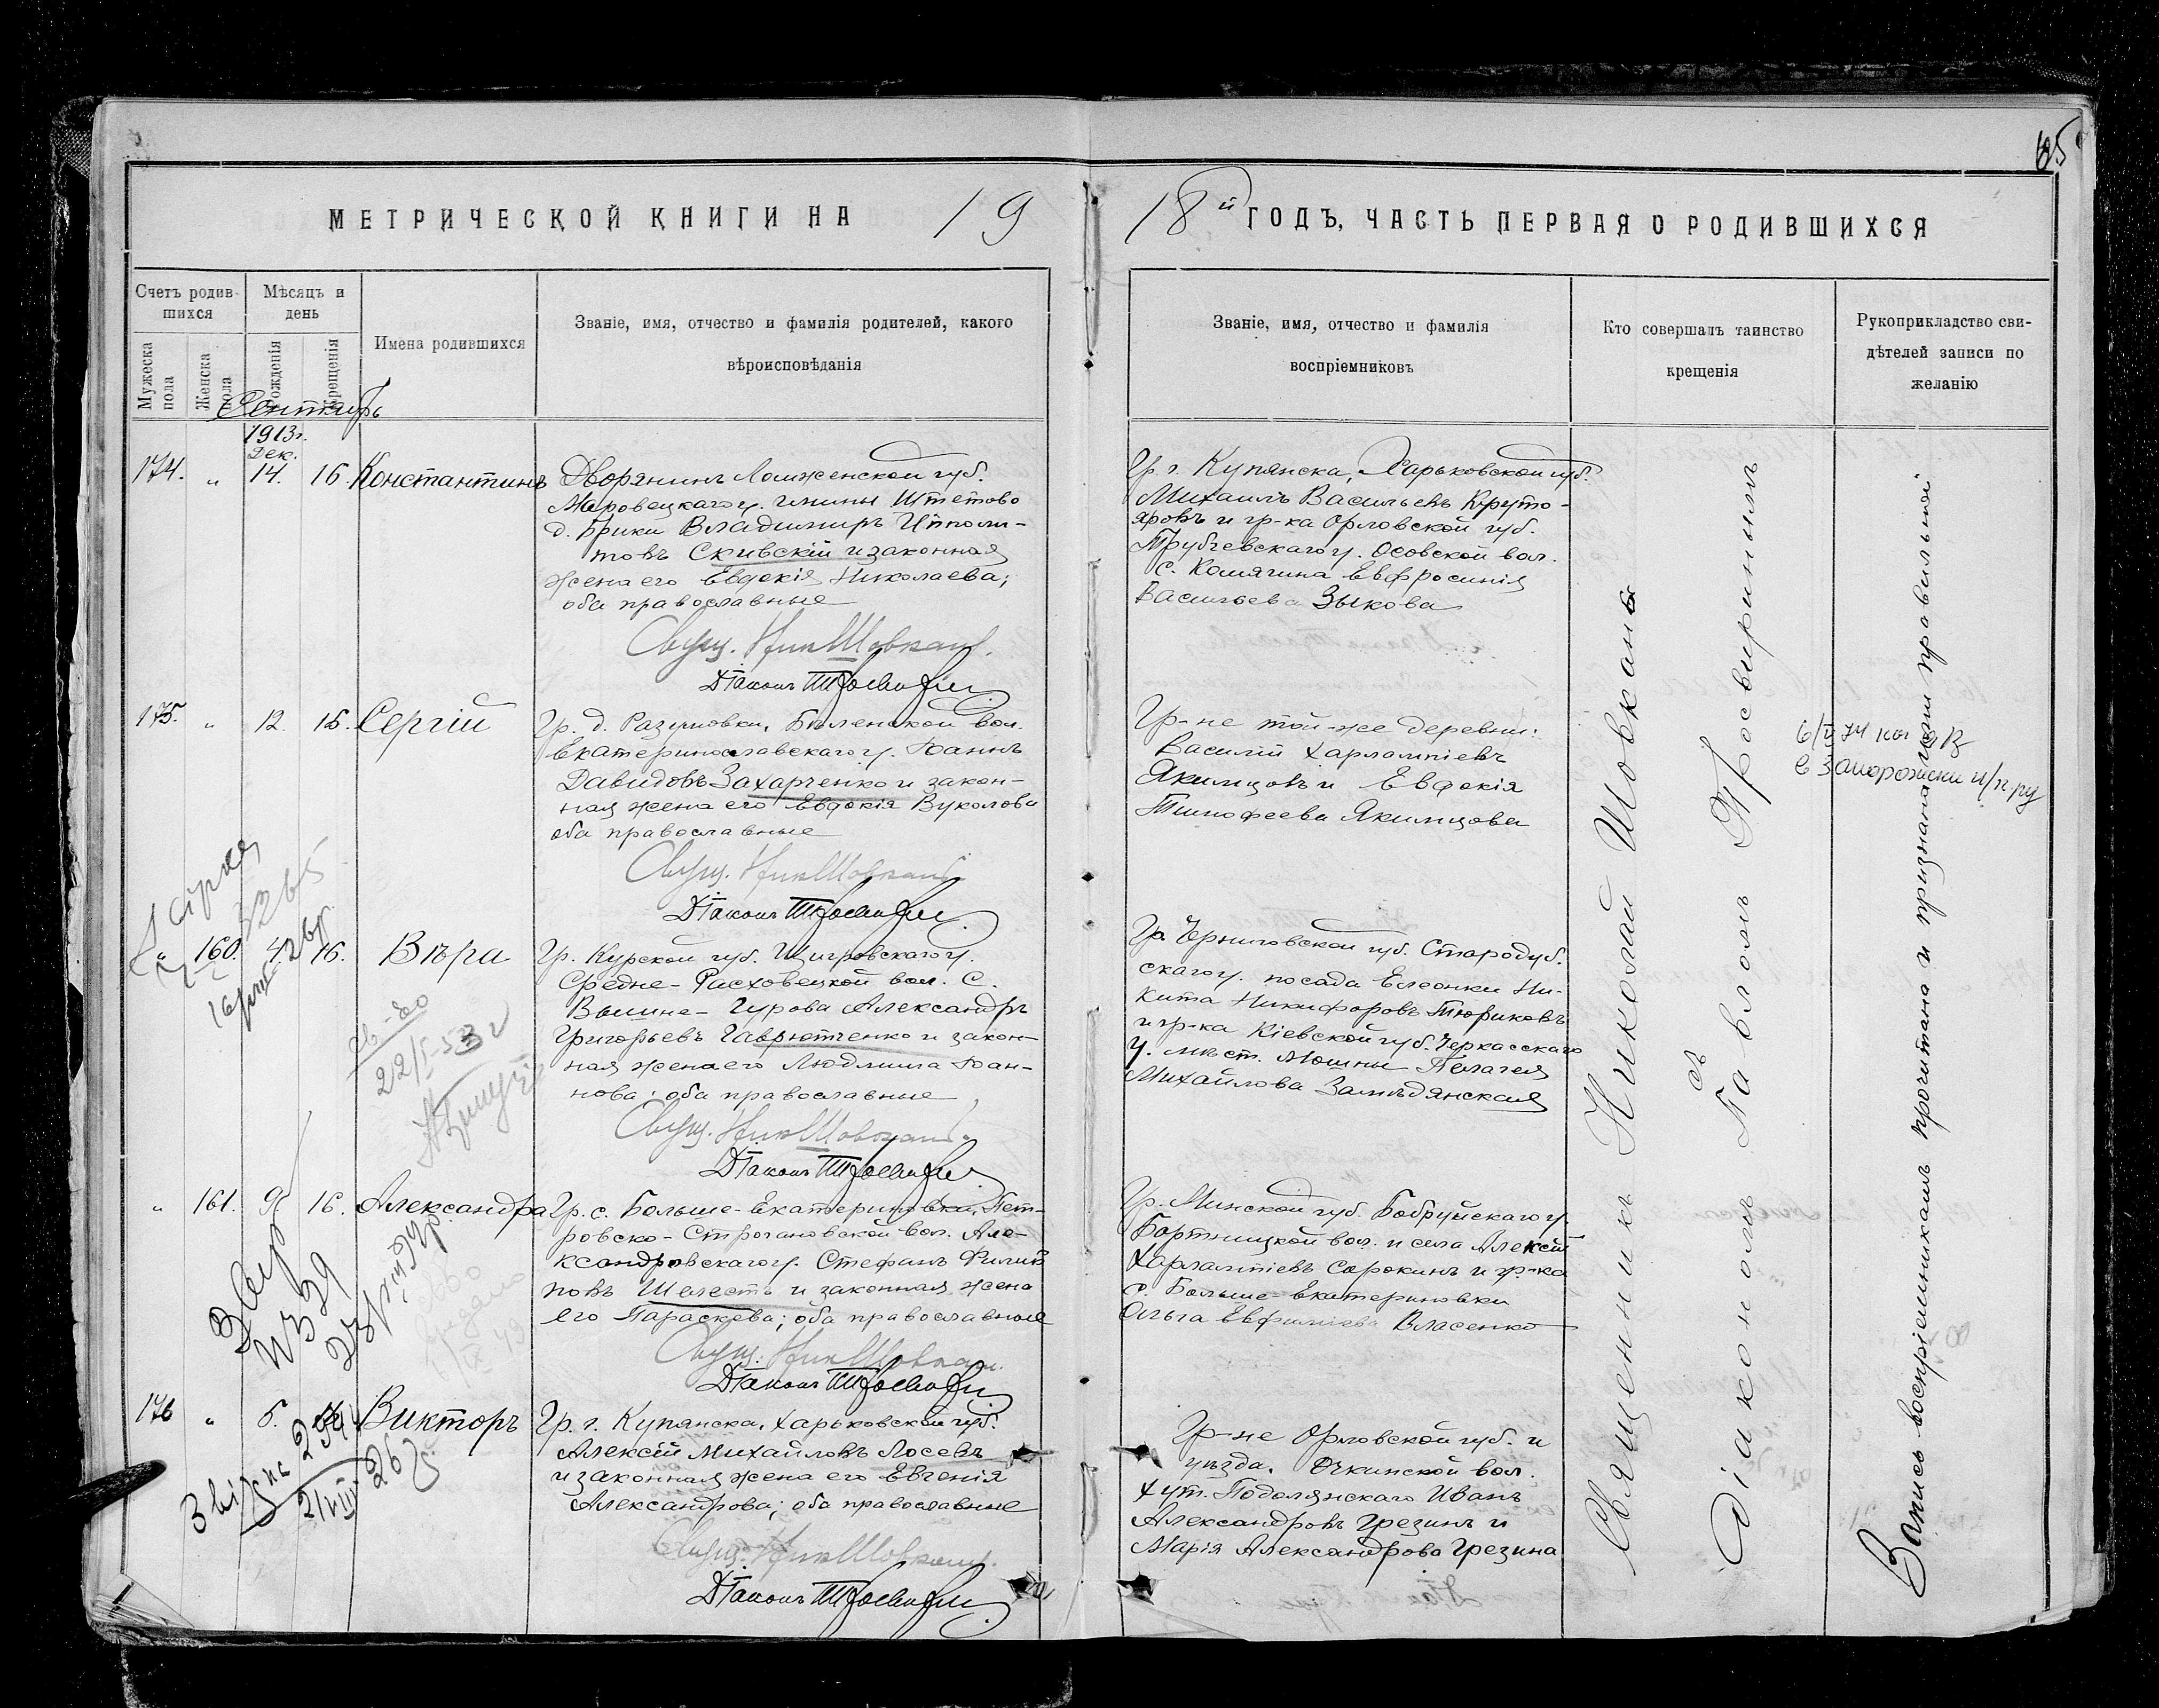 65
МЕТРИЧЕСКОЙ КНИГИ НА 19
18й ГОДЪ, ЧАСТЬ ПЕРВАЯ О РОДИВШИХСЯ
Счетъ родив-
шихся
Мѣсяцъ и
день
Мужеска
пола
Женска
пола
Рожденія
Крещенія
Имена родившихся
Званіе, имя, отчество и фамилія родителей, какого
вѣроисповѣданія
Званіе, имя, отчество и фамилія
воспріемниковъ
Кто совершалъ таинство
крещенія
Рукоприкладство сви-
дѣтелей записи по
желанію
Сентябрь
1913г.
Дек.
174. " 14. 16. Константинъ
Дворянинъ Ломженской губ.
Мазовецкаго у. гмины
д. Брики Владимиръ Ипполи-
товъ Скивскій и законная
жена его Евдокія Николаева;
оба православные
Свящ. Ник Шовкань.
Діаконъ
Гр. г. Купянска, Харьковской губ.
Михаилъ Васильевъ Круто-
яровъ и гр-ка Орловской губ.
Трубчевскаго у. Осовской вол.
с. Комягина Евфросинія
Васильева Зыкова
175. " 12. 16. Сергій
Гр. д. Разумовки, Бѣленской вол.
Екатеринославскаго у. Іоаннъ
Давидовъ Захарченко и закон-
ная жена его Евдокія Вуколова
оба православные
Свящ. Ник Шовкань
Діаконъ
Гр-не той-же деревни:
Василій Харлампіевъ
Якимцовъ и Евдокія
Тимофеева Якимцова
в Запорожски
" 160. 4. 16. Вѣра
Гр. Курской губ. Щигровскаго у.
Средне-Расховецкой вол. С.
Вышне-Гурова Александръ
Григорьевъ Гаврютченко и закон-
ная жена его Людмила Іоан-
нова; оба православные
Свящ. Ник Шовкань.
Діаконъ
Гр. Черниговской губ. Стародуб.
скаго у. посада Елеонки Ни-
кита Никифоровъ Тюриковъ
и гр-ка Кіевской губ. Черкасскаго
у. мѣст. Мошны Пелагея
Михайлова
22/I-53г
" 161. 9. 16. Александра
Гр. с. Больше-Екатериновки, Пет-
ровско-Строгановской вол. Але-
ксандровскаго у. Стефанъ Филип
повъ Шелестъ и законная жена
его Параскева; оба православные
Свящ. Ник Шовкань.
Діаконъ
Гр. Минской губ. Бобруйскаго у.
Бортницкой вол. и села Алексѣй
Харлампіевъ Сорокинъ и гр-ка
с. Больше-Екатериновки
Ольга Евфиміева Власенко
176 " 5. Викторъ
Гр. г. Купянска, Харьковской губ.
Алексій Михайловъ Лосевъ
и законная жена его Евгенія
Александрова; оба православные
Свящ. Ник Шовкань.
Діаконъ
Гр-не Орловской губ. и
уѣзда, Очкинской вол.
хут. Подолянскаго Иванъ
Александровъ Грезинъ и
Марія Александрова Грезина
Священникъ Николай Шовкань
съ
Діакономъ Павломъ Просвиринымъ
Запись воспріемникамъ прочитана и признана ими правильной